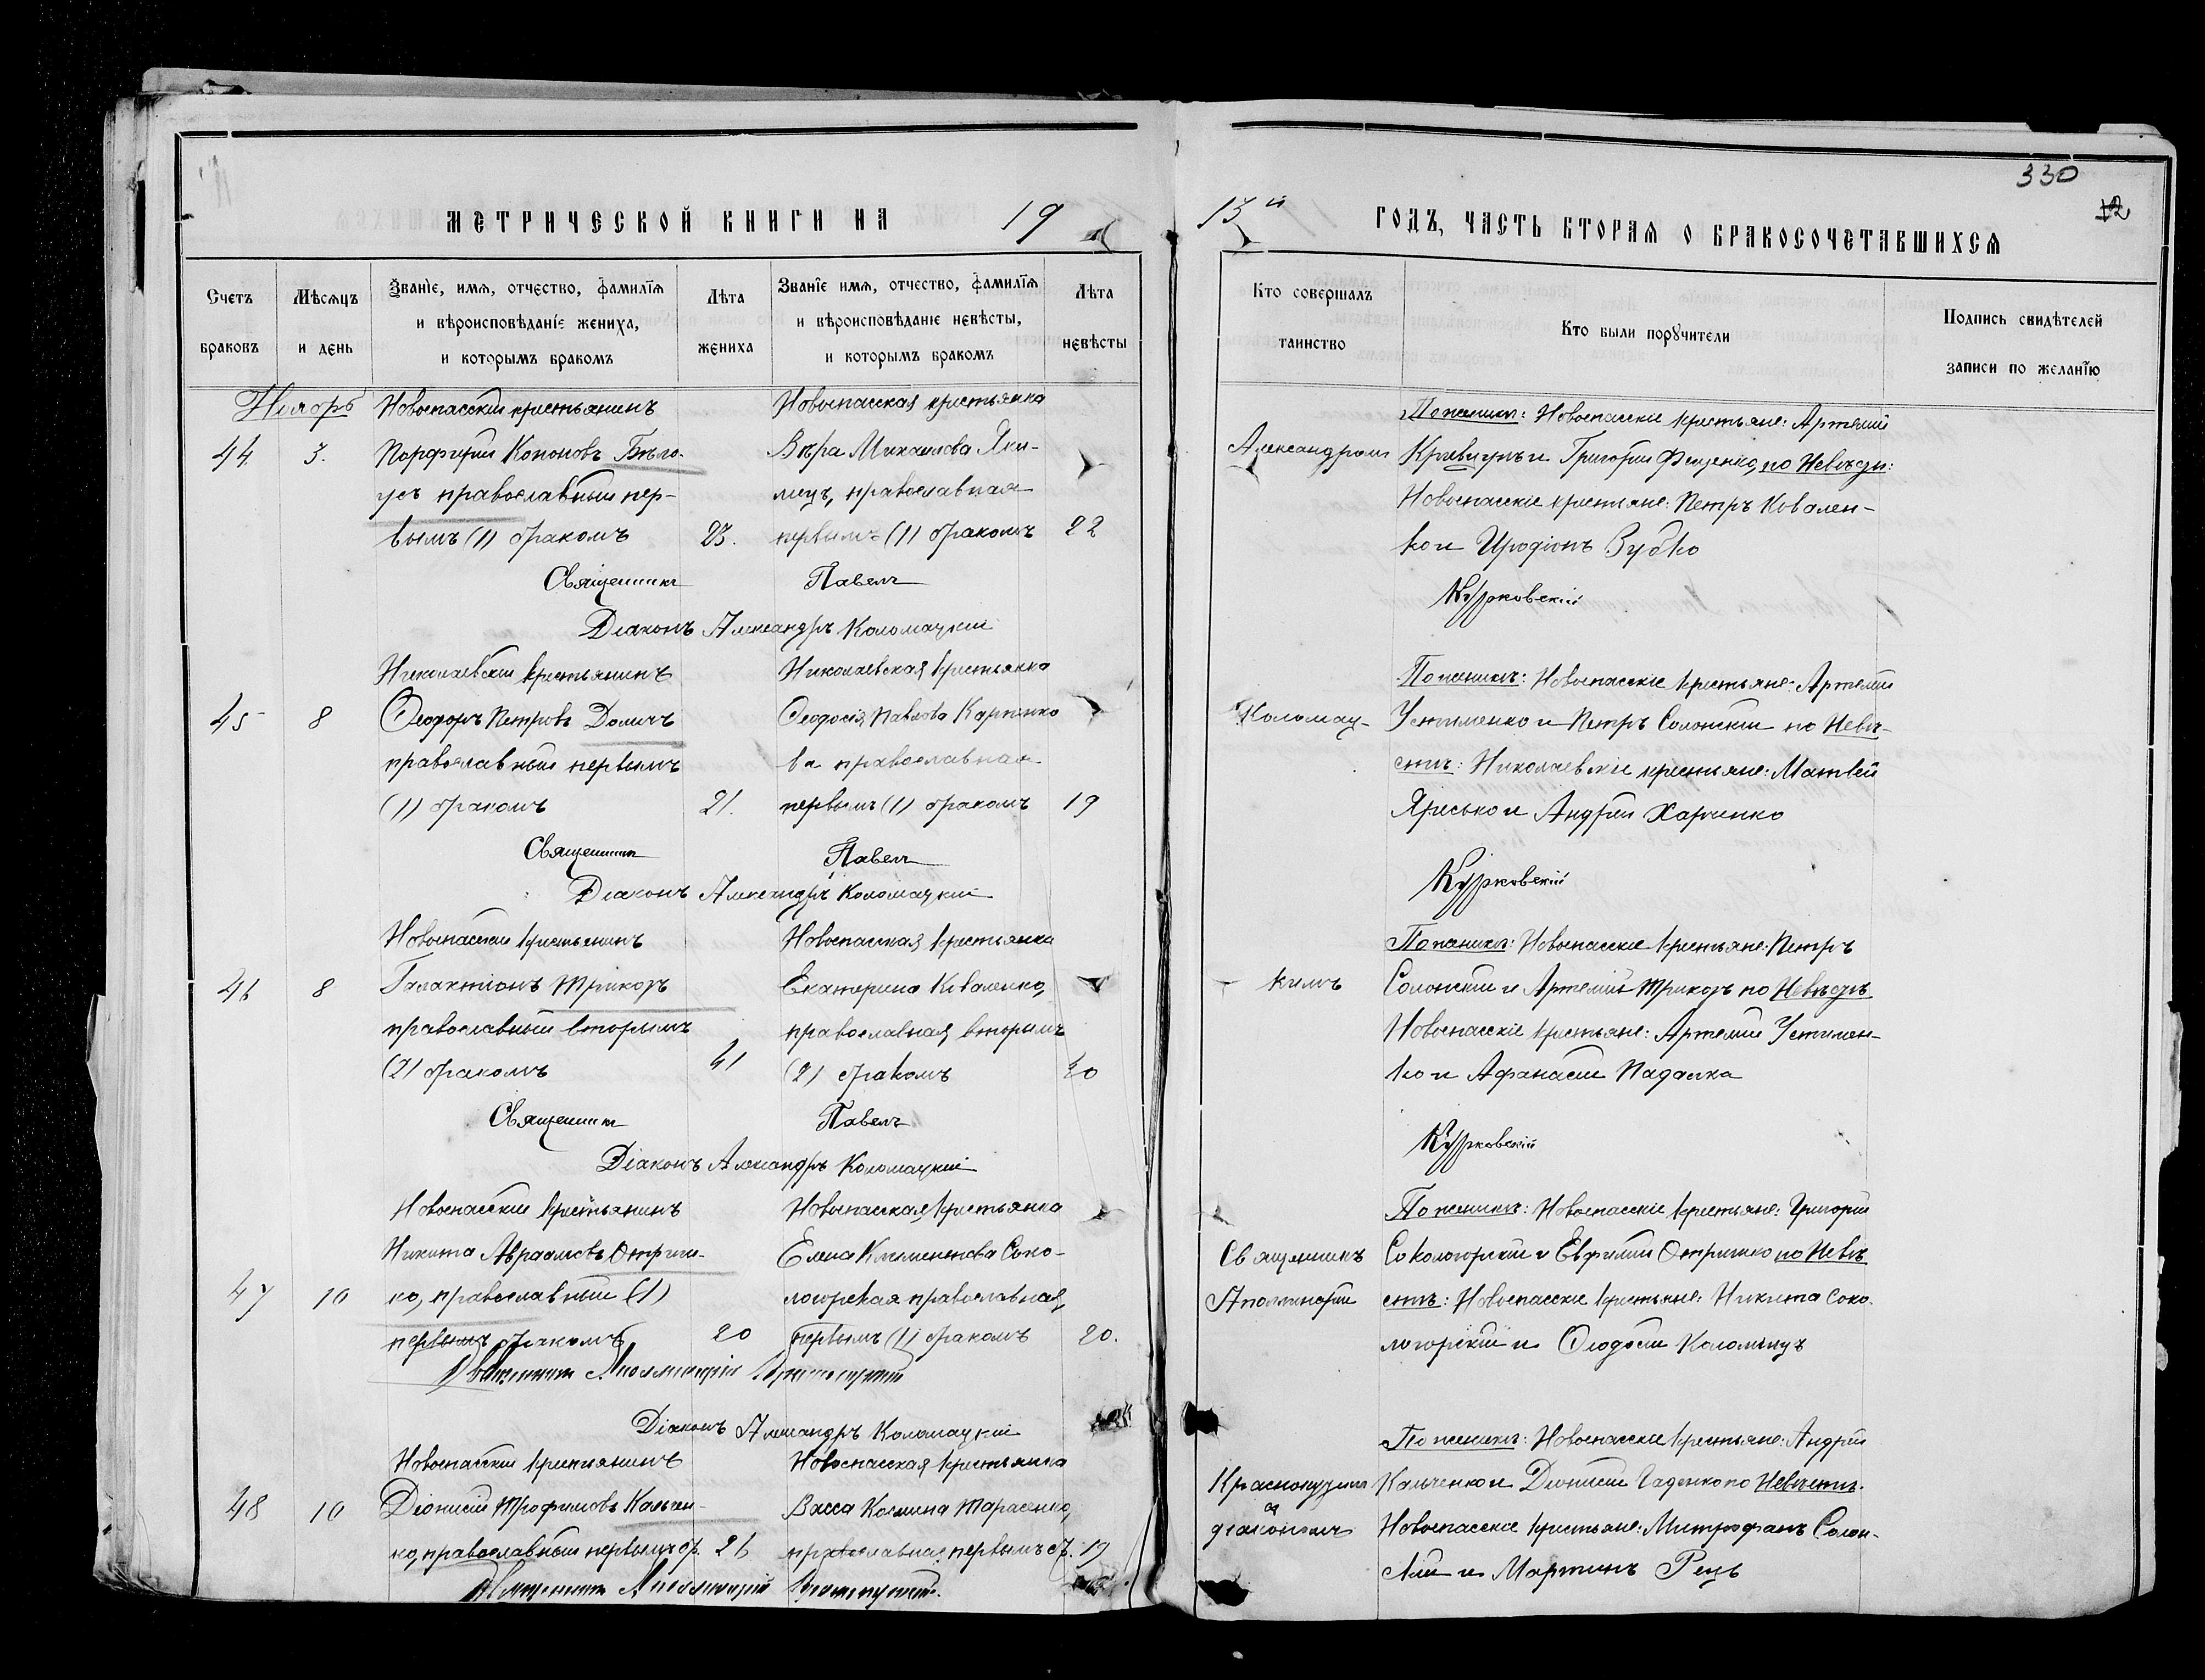 330
12
МЕТРИЧЕСКОЙ КНИГИ НА 19
13й ГОДЪ, ЧАСТЬ ВТОРАЯ О БРАКОСОЧЕТАВШИХСЯ
Счетъ браковъ
Мѣсяцъ и день
Званіе, имя, отчество, фамилія и вѣроисповѣданіе жениха, и которымъ бракомъ
Лѣта жениха
Званіе имя, отчество, фамилія и вѣроисповѣданіе невѣсты, и которымъ бракомъ
Лѣта невѣсты
Кто совершалъ таинство
Кто были поручители
Подпись свидѣтелей записи по желанію
Ноябрь
Новоспасскій крестьянинъ
44. 3. Порфирій Кононовъ Бѣло-
усъ православный пер-
вымъ (1) бракомъ 23.
Новоспасская крестьянка
Вѣра Михаилова Яки-
мецъ, православная
первымъ (1) бракомъ 22
Александромъ
По женихѣ: Новоспасскіе крестьяне: Артемій
Кривцунъ и Григорій Фещенко, по Невѣсти:
Новоспасскіе крестьяне: Петръ Ковален-
ко и Иродіонъ Зубко
Священникъ Павелъ Курковскій
Діаконъ Александръ Коломацкій
Николаевскій крестьянинъ
45 8 Ѳеодоръ Петровъ Доличъ
православный первымъ
(1) бракомъ 21.
Николаевская крестьянка
Ѳеодосія Павлова Карпенко
ва православная
первымъ (1) бракомъ 19
Коломац-
По женихѣ: Новоспасскіе крестьяне: Артемій
Устименко и Петръ Солонскій по Невѣ-
стѣ: Николаевскіе крестьяне: Матвей
Яресько и Андрей Харченко
Священникъ Павелъ Курковскій
Діаконъ Александръ Коломацкій
Новоспасскій крестьянинъ
46 8 Галактіонъ Трикозъ
православный вторымъ
(2) бракомъ 41
Новоспасская крестьянка
Екатерина Коваленко,
православная, вторымъ
(2) бракомъ
кимъ
По женихѣ: Новоспасскіе крестьяне: Петръ
Солонскій и Артемій Трикозъ по Невѣстѣ
Новоспасскіе крестьяне: Артемій Устимен-
ко и Афанасій Падалка
Священникъ Павелъ Курковскій
Діаконъ Александръ Коломацкій
Новоспасскій крестьянинъ
Никита Авраамовъ Отриш-
47 10 ко, православный (1)
первымъ бракомъ 20
Новоспасская, крестьянка
Елена Климентова Соко-
логорская православная,
первымъ (1) бракомъ 20.
Священникъ
Аполлинарій
По женихѣ: Новоспасскіе крестьяне: Григорій
Сокологорскій и Евфимій Отришко по Невѣ
стѣ: Новоспасскіе крестьяне: Никита Соко-
логорскій и Ѳеодосій Коломіецъ
Священникъ Аполлинарій Краснокутскій
Діаконъ Александръ Коломацкій
Новоспасскій крестьянинъ
48 10 Діонисій Трофимовъ Кальчен-
ко, православный первымъ бр. 26
Новоспасская крестьянка
Васса Космина Тарасенко,
православная, первымъ бр. 19
Краснокутскимъ
съ
діакономъ
По женихѣ: Новоспасскіе крестьяне: Андрей
Кальченко и Діонисій Гаденко по Невѣстѣ.
Новоспасскіе крестьяне: Митрофанъ Солон-
скій и Мартинъ Рець
Священникъ Аполлинарій Краснокутскій.